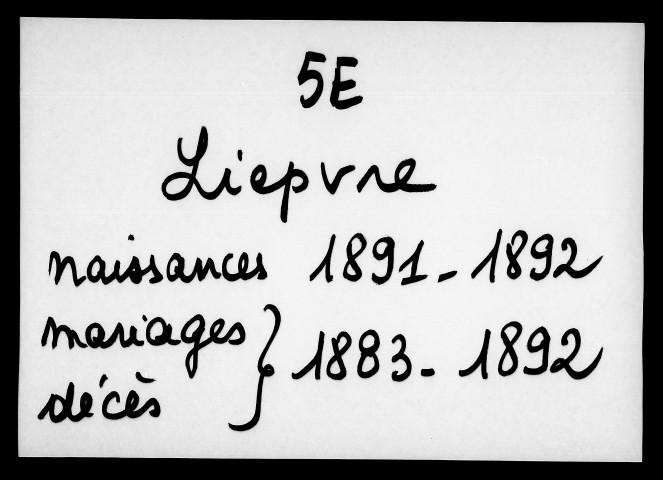 5E
Liepvre
naissances 1891-1892
mariages } 1883-1892
décès